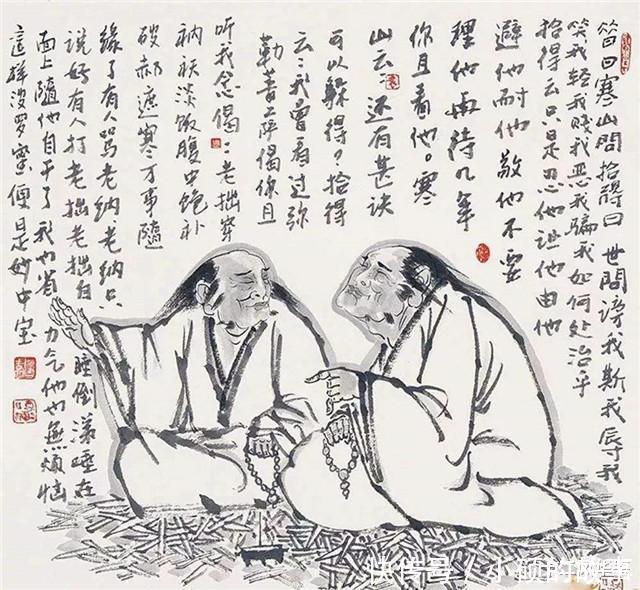 昔日寒山問拾得曰世間謗我欺我辱我
笑我輕我賤我惡我騙我如何处治乎
拾得云只是忍他让他由他
避他耐他敬他不要
理他再待几年
你且看他。寒
山云:还有甚诀
可以躲得?拾得
云:我曾看过弥
勒菩萨偈你且
听我念偈:老拙穿
衲袄淡饭腹中饱补
破郝遮寒万事随
缘了有人骂老纳老纳只
说好有人打老拙老拙自
睡倒漾唾在
面上随他自干了我也省
力气他也無煩恼
這样波罗蜜便是妙中宝
快传号/小颖的故